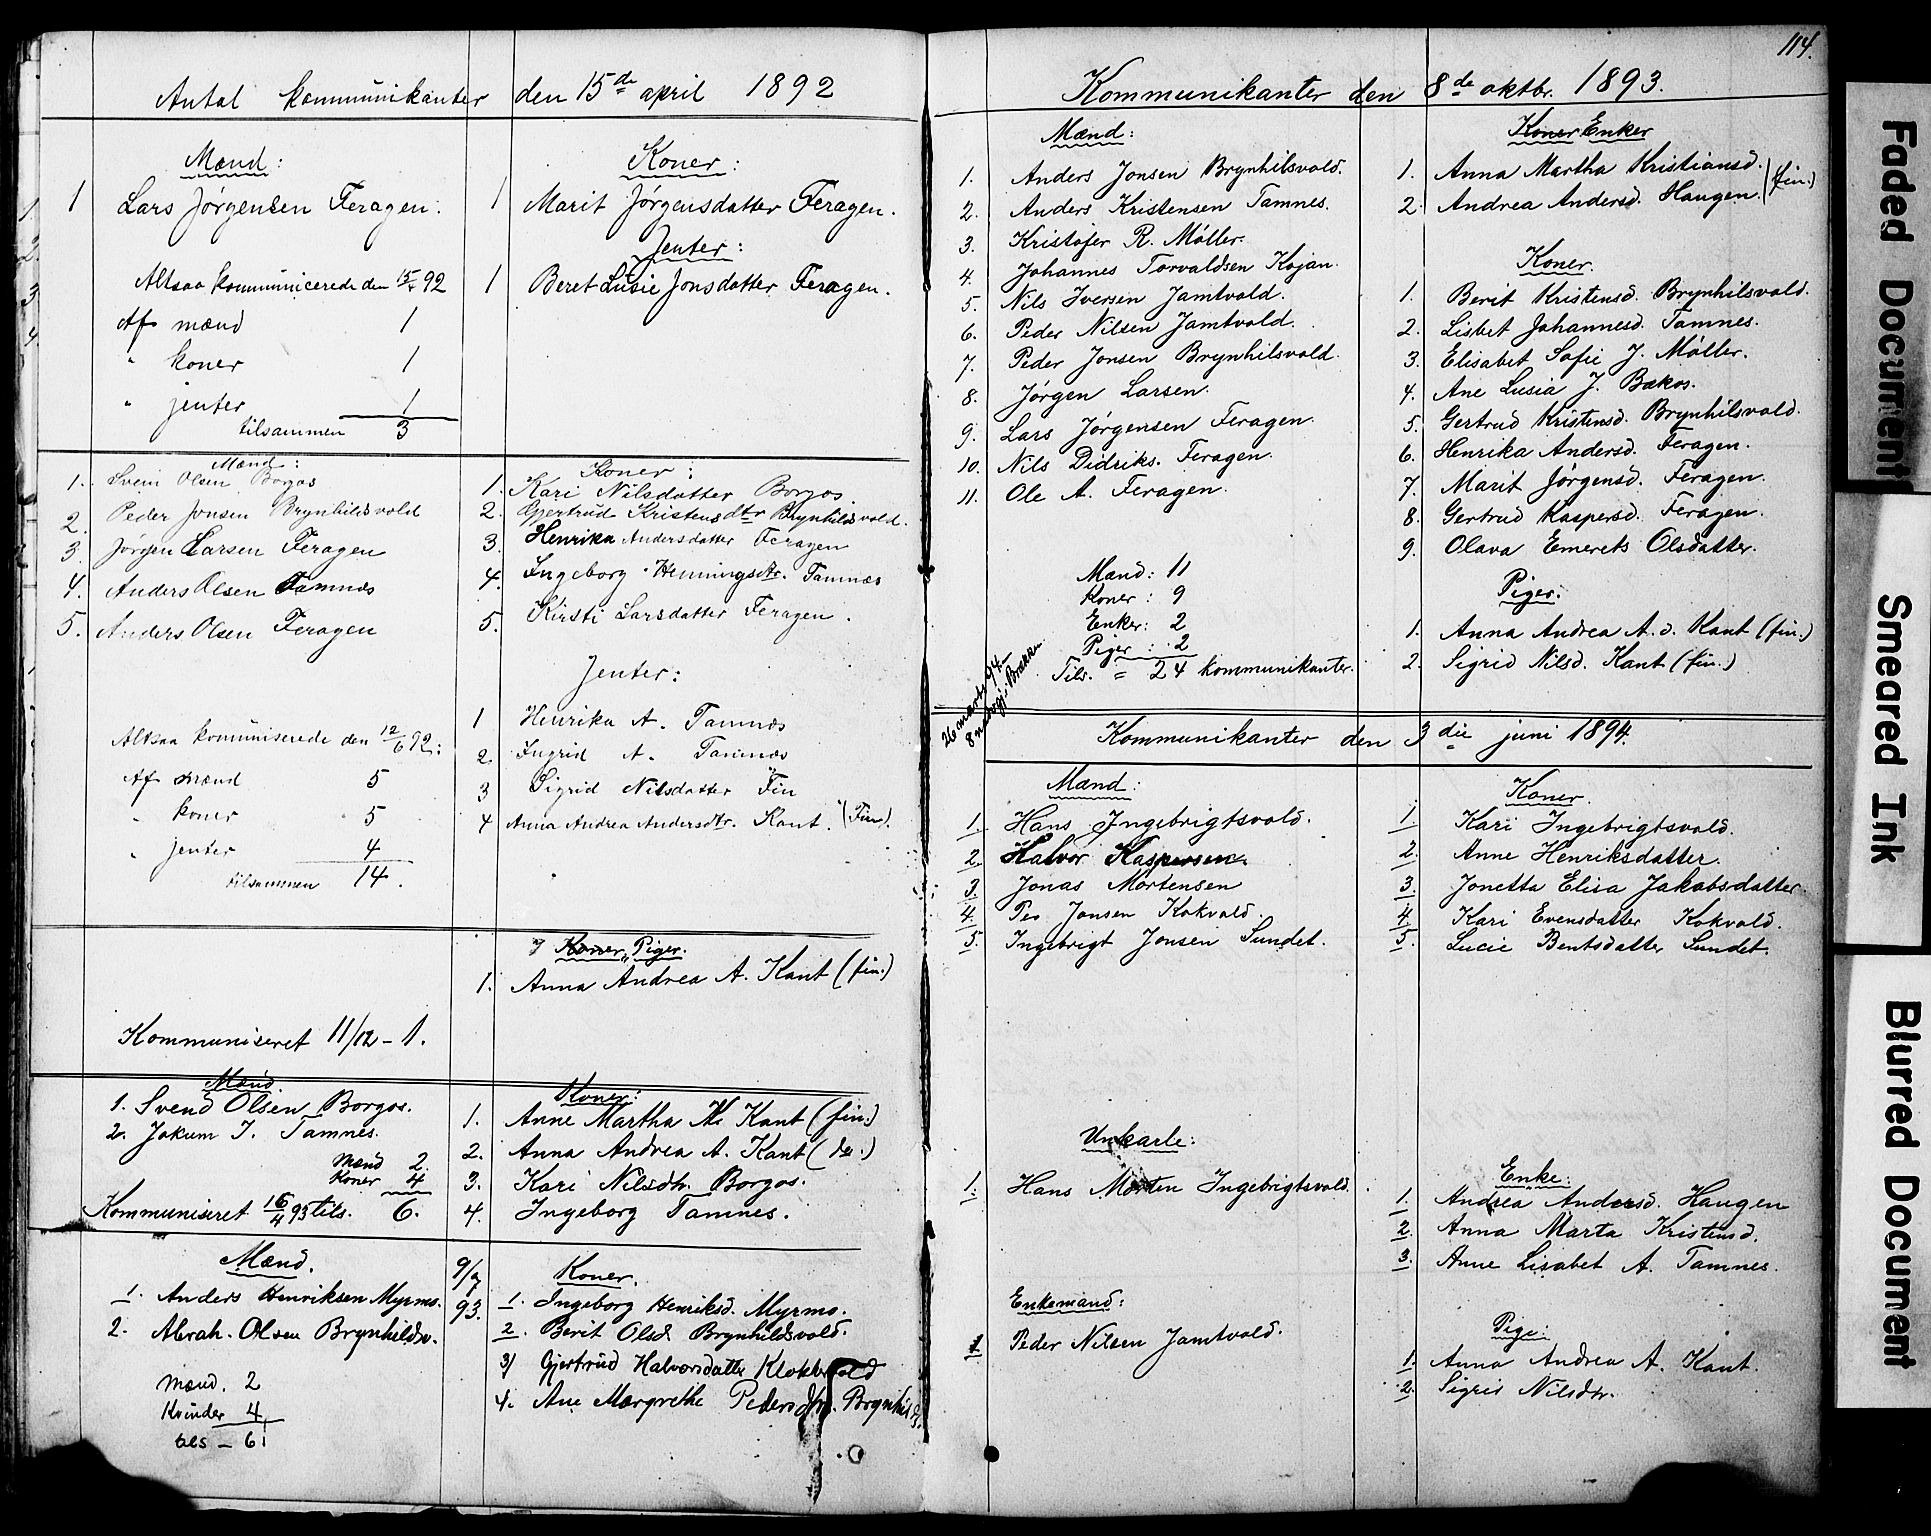 Antal kommunikanter den 15de april 1892
Mænd:
1 Lars Jørgensen Feragen.
Altsaa kommunicerede den 15/4 92
Af mænd 1
" koner 1
" jenter 1
tilsammen 3
Koner:
1 Marit Jørgensdatter Feragen.
Jenter:
1 Beret Lusie Jonsdatter Feragen.
Mænd:
1. Svein Olsen Borgos
2. Peder Jonsen Brynhildsvold
3. Jørgen Larsen Feragen
4. Anders Olsen Tamnæs
5. Anders Olsen Feragen
Altsaa kommuniserede den 12/6 92:
Af mænd 5
" koner 5
" jenter 4
tilsammen 14.
Koner:
1. Kari Nilsdatter Borgos.
2. Gjertrud Kristensdtr Brynhildsvold.
3. Henrika Andersdatter Feragen
4. Ingeborg Henningsdtr. Tamnæs
5. Kirsti Larsdatter Feragen.
Jenter:
1 Henrika A. Tamnæs
2. Ingrid A. Tamnæs
3 Sigrid Nilsdatter Fin
4 Anna Andrea Andersdtr. Kant. (Fin).
Kommuniseret 11/12 - 1.
Koner, Piger.
1. Anna Andrea A. Kant (fin.)
Mænd.
1. Svend Olsen Borgos.
2. Jokum J. Tamnes.
Mænd 2.
Koner 4
Kommuniseret 16/4 93 tils. 6.
Koner:
1. Anne Martha K. Kant (fin.)
2. Anna Andrea A. Kant (do.)
3. Kari Nilsdtr. Borgos.
4. Ingeborg Tamnes.
Mænd.
1. Anders Henriksen Myrmo.
2. Abrah. Olsen Brynhildsv.
Mænd. 2
Kvinder 4
tils - 6
9/7 93.
Koner.
1. Ingeborg Henriksd. Myrmo.
2. Berit Olsd. Brynhildsvold.
3) Gjertrud Halvorsdatter Klokkervold
4. Ane Margrethe Pedersdtr. Brynhilds.
114.
Kommunikanter den 8de oktbr. 1893.
Mænd:
1. Anders Jonsen Brynhilsvold.
2. Anders Kristensen Tamnes.
3. Kristofer R. Møller.
4. Johannes Torvaldsen Kojan.
5. Nils Iversen Jamtvold.
6. Peder Nilsen Jamtvold.
7. Peder Jonsen Brynhilsvold.
8. Jørgen Larsen.
9. Lars Jørgensen Feragen.
10. Nils Didriks. Feragen.
11. Ole A. Feragen.
Mænd: 11
Koner: 9
Enker: 2
Piger: 2
Tils. = 24 kommunikanter.
Koner Enker
1. Anna Martha Kristiansd.
2. Andrea Andersd. Haugen. (fin.)
Koner.
1. Berit Kristensd. Brynhilsvold.
2. Lisbet Johannesd. Tamnes.
3. Elisabet Sofie J. Møller.
4. Ane Lusia J. Bækos.
5. Gertrud Kristensd. Brynhilsvold.
6. Henrika Andersd. Feragen.
7. Marit Jørgensd. Feragen.
8. Gertrud Kaspersd. Feragen.
9. Olava Emerets Olsdatter.
Piger:
1. Anna Andrea A.d. Kant (fin.)
2. Sigrid Nilsd. Kant (fin.)
26 marts 94.-
Kommunikanter den 3die juni 1894.
Mænd:
1. Hans Ingebrigtsvold.
2. Halvor Kaspersen.
3. Jonas Mortensen
4. Per Jonsen Kokvold.
5. Ingebrigt Jonsen Sundet.
Koner.
1. Kari Ingebrigtsvold.
2. Anne Henriksdatter.
3. Jonetta Elisa Jakobsdatter.
4. Kari Evensdatter Kokvold.
5. Lucie Bentsdatter Sundet.
Unkarle:
1. Hans Morten Ingebrigtsvold.
Enke:
1. Andrea Andersd. Haugen
2. Anna Marta Kristensd.
3. Anne Lisabet A. Tamnes.
Enkemand:
1 Peder Nilsen Jamtvold.
Pige:
1. Anna Andrea A. Kant.
2. Sigris Nilsdtr.
Faded Document
Smeared Ink
Blurred Document